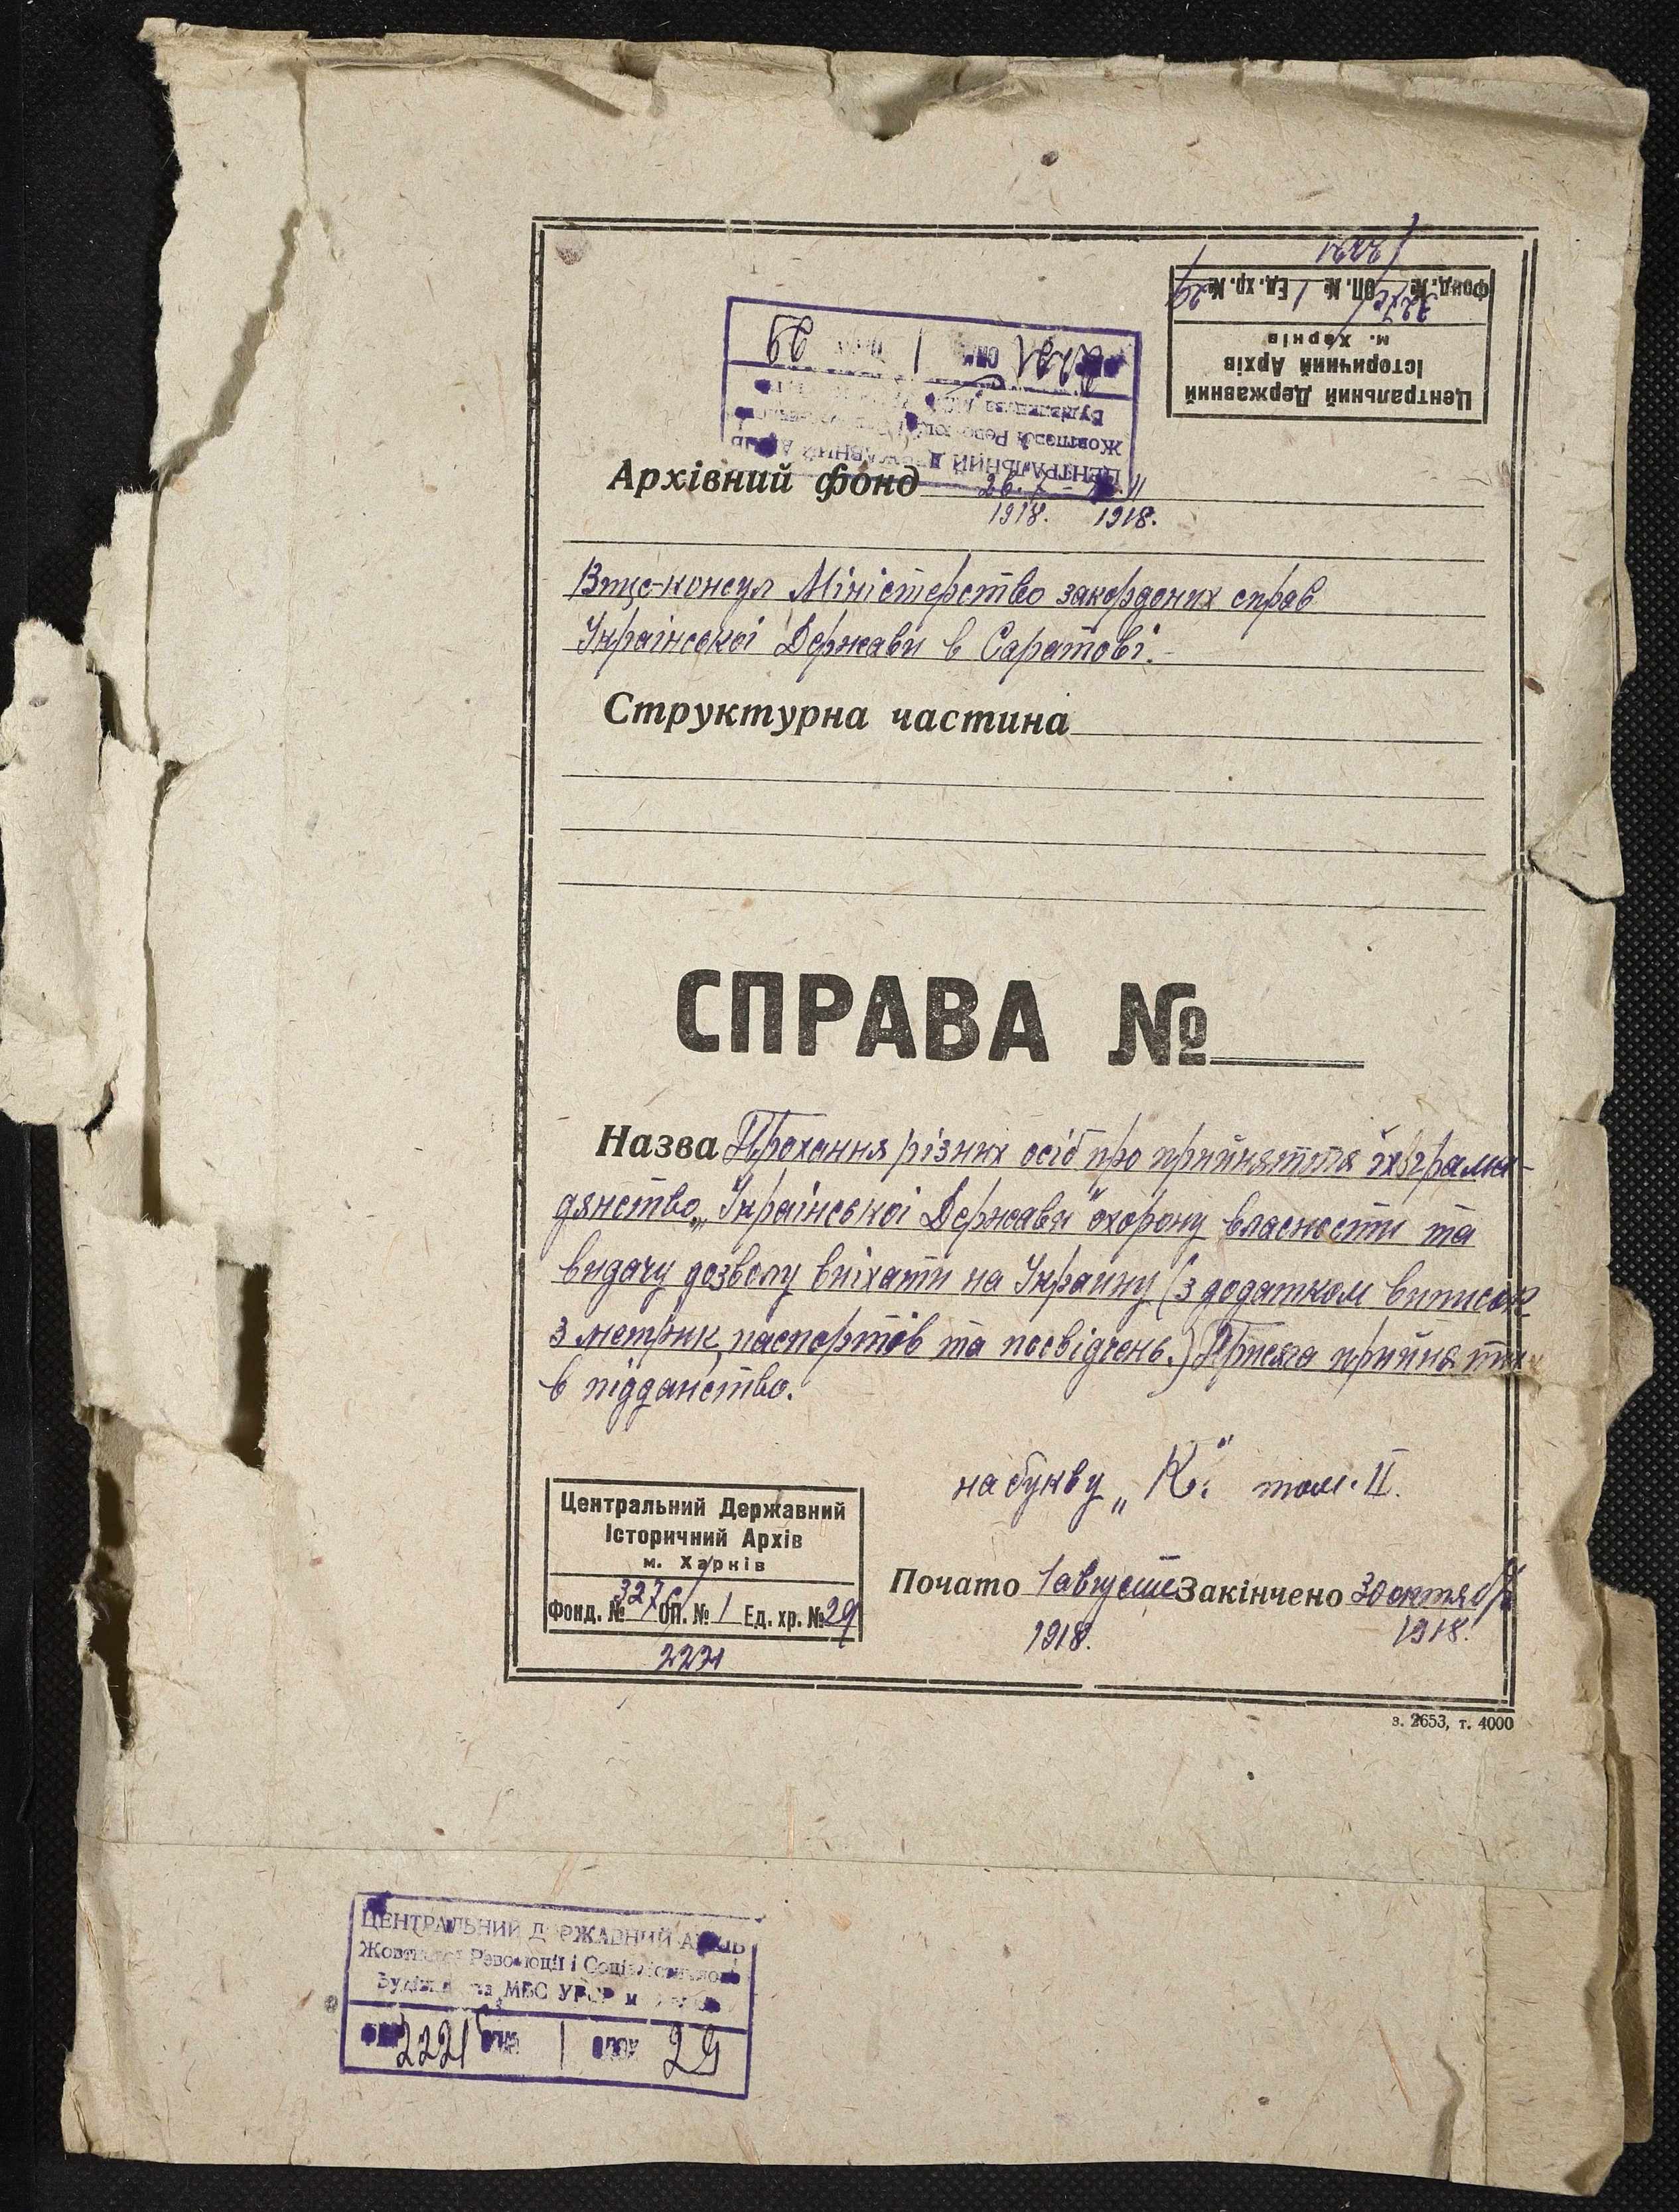 1221
Фонд. № 327с ОП. № 1 Ед. хр. № 29
м. Харків
Історичний Архів
Центральний Державний
2221 1 29
ЦЕНТРАЛЬНИЙ ДЕРЖАВНИЙ АРХІВ
Жовтневої Революції
Будівництва
Архівний фонд 26.
1918. 1918.
Вице-консул Міністерство закордоних справ
Української Держави в Саратові.
Структурна частина
СПРАВА №
Назва Прохання різних осіб про прийняття їх грама-
дянство „Української Держави" охорону власности та
видачу дозволу виїхати на Украину (з додатком виписок
з метрик, паспортів та посвідчень.) Присяга прийняти
в підданство.
на букву „К." том. II.
Центральний Державний
Історичний Архів
м. Харків
Фонд. № 327с ОП. № 1 Ед. хр. № 29
2221
Почато 1 августа Закінчено 30 октября
1918. 1918.
з. 2653, т. 4000
ЦЕНТРАЛЬНИЙ ДЕРЖАВНИЙ АРХІВ
Жовтневої Революції і Соціалістичного
Будівництва МВС УРСР м
2221 1 29